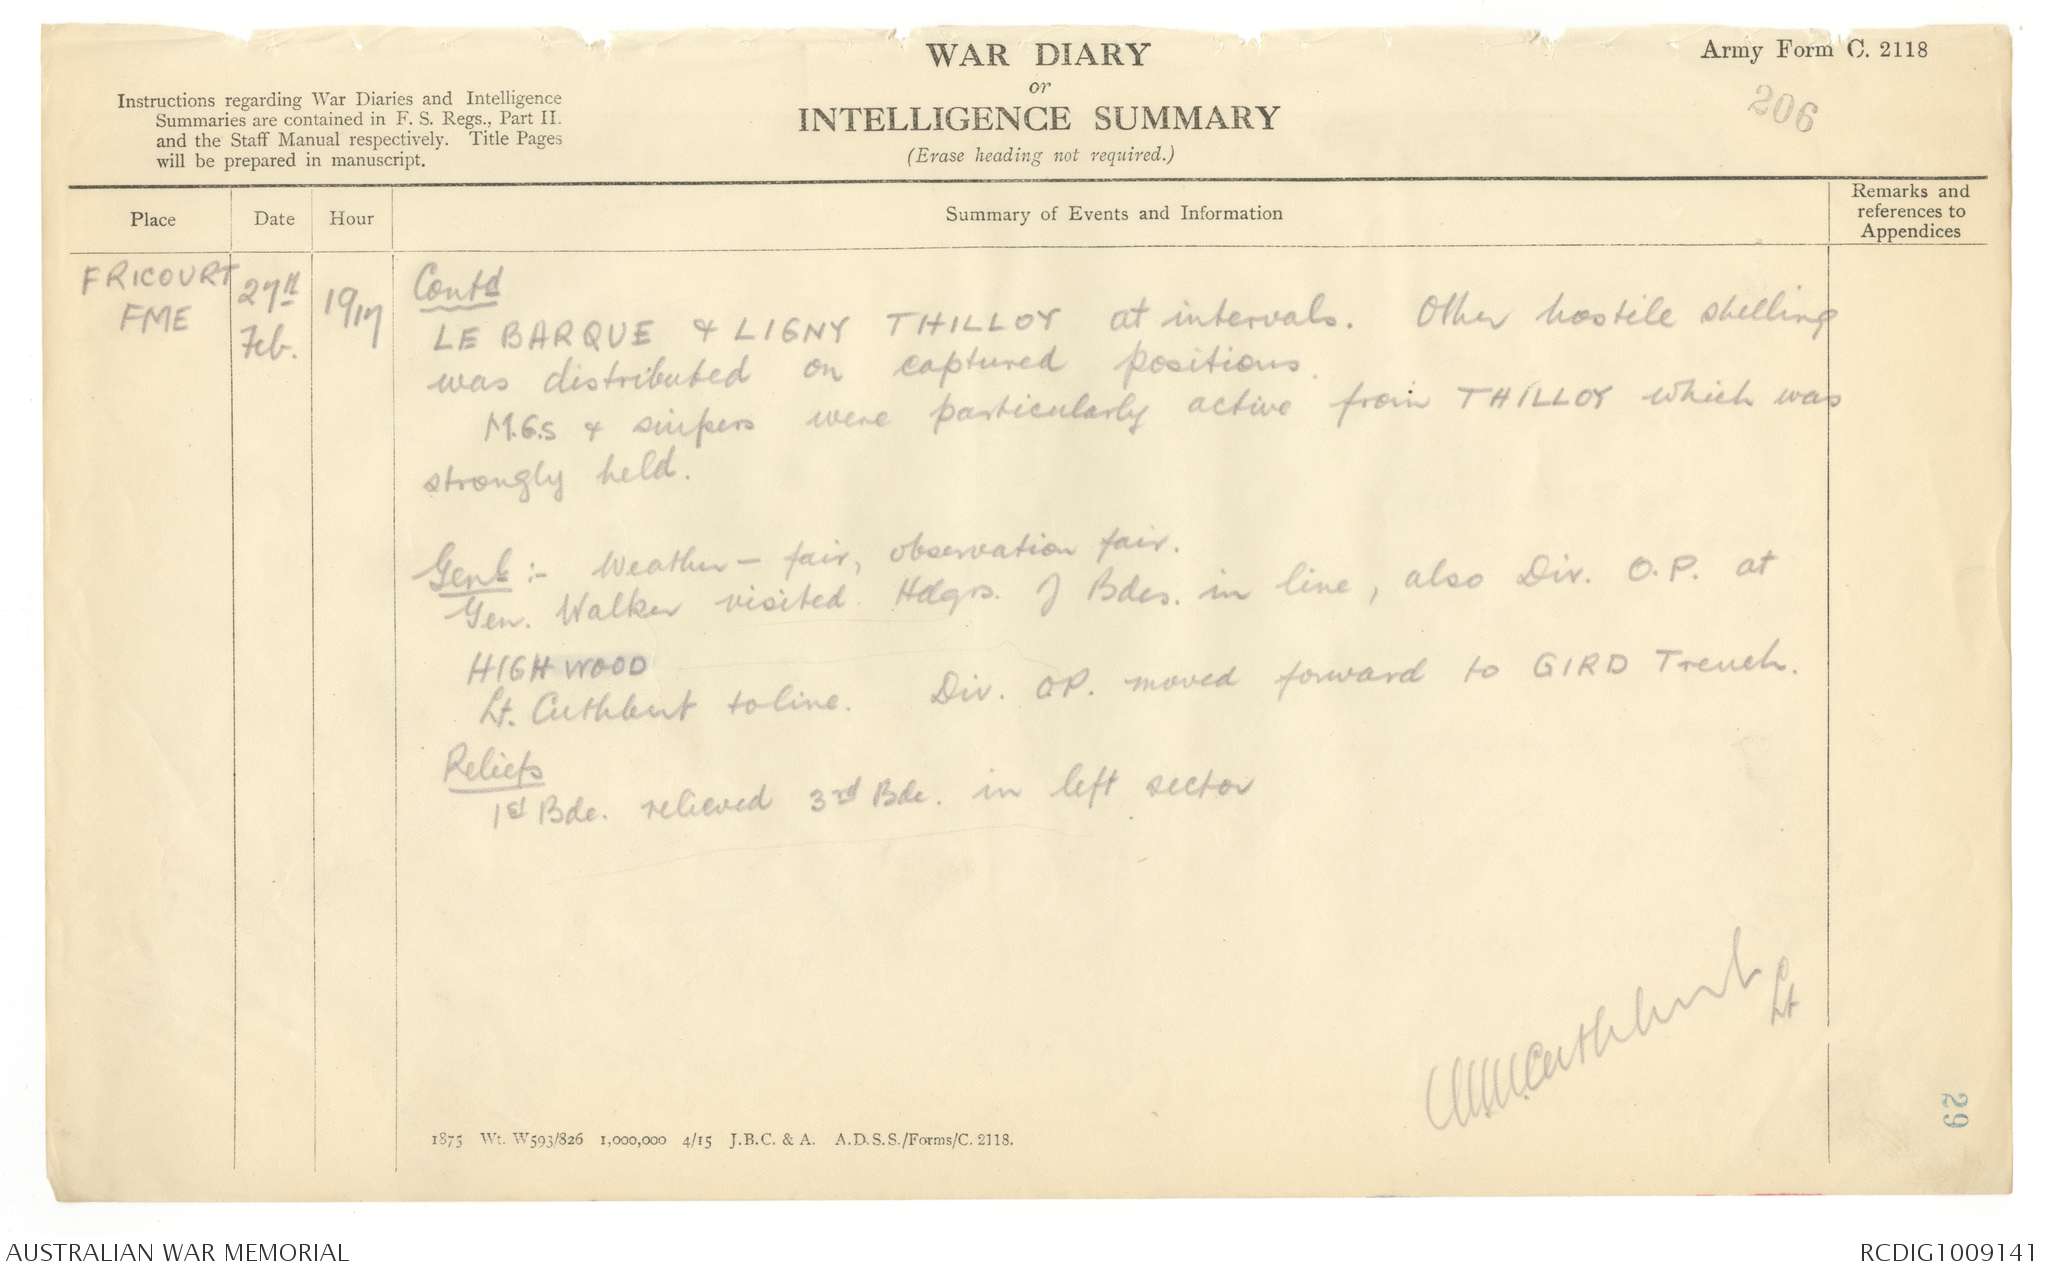 WAR DIARY
or
INTELLIGENCE SUMMARY
(Erase heading not required.)
Army Form C. 2118
206
Instructions regarding War Diaries and Intelligence
Summaries are contained in F. S. Regs., Part II.
and the Staff Manual respectively. Title Pages
will be prepared in manuscript.
Place Date Hour Summary of Events and Information Remarks and references to Appendices
FRICOURT
FME
27th
Feb.
1917
Contd
LE BARQUE & LIGNY THILLOY at intervals. Other hostile shelling
was distributed on captured positions.
M.G.s & snipers were particularly active from THILLOY which was
strongly held.
Genl :- Weather - fair, observation fair.
Gen. Walker visited Hdqrs. of Bdes. in line, also Div. O.P. at
HIGH WOOD
Lt. Cuthbert to line. Div. OP. moved forward to GIRD Trench.
Reliefs
1st Bde. relieved 3rd Bde. in left sector
Cuthbert Lt
29
1875 Wt. W593/826 1,000,000 4/15 J.B.C. & A. A.D.S.S./Forms/C. 2118.
AUSTRALIAN WAR MEMORIAL
RCDIG1009141